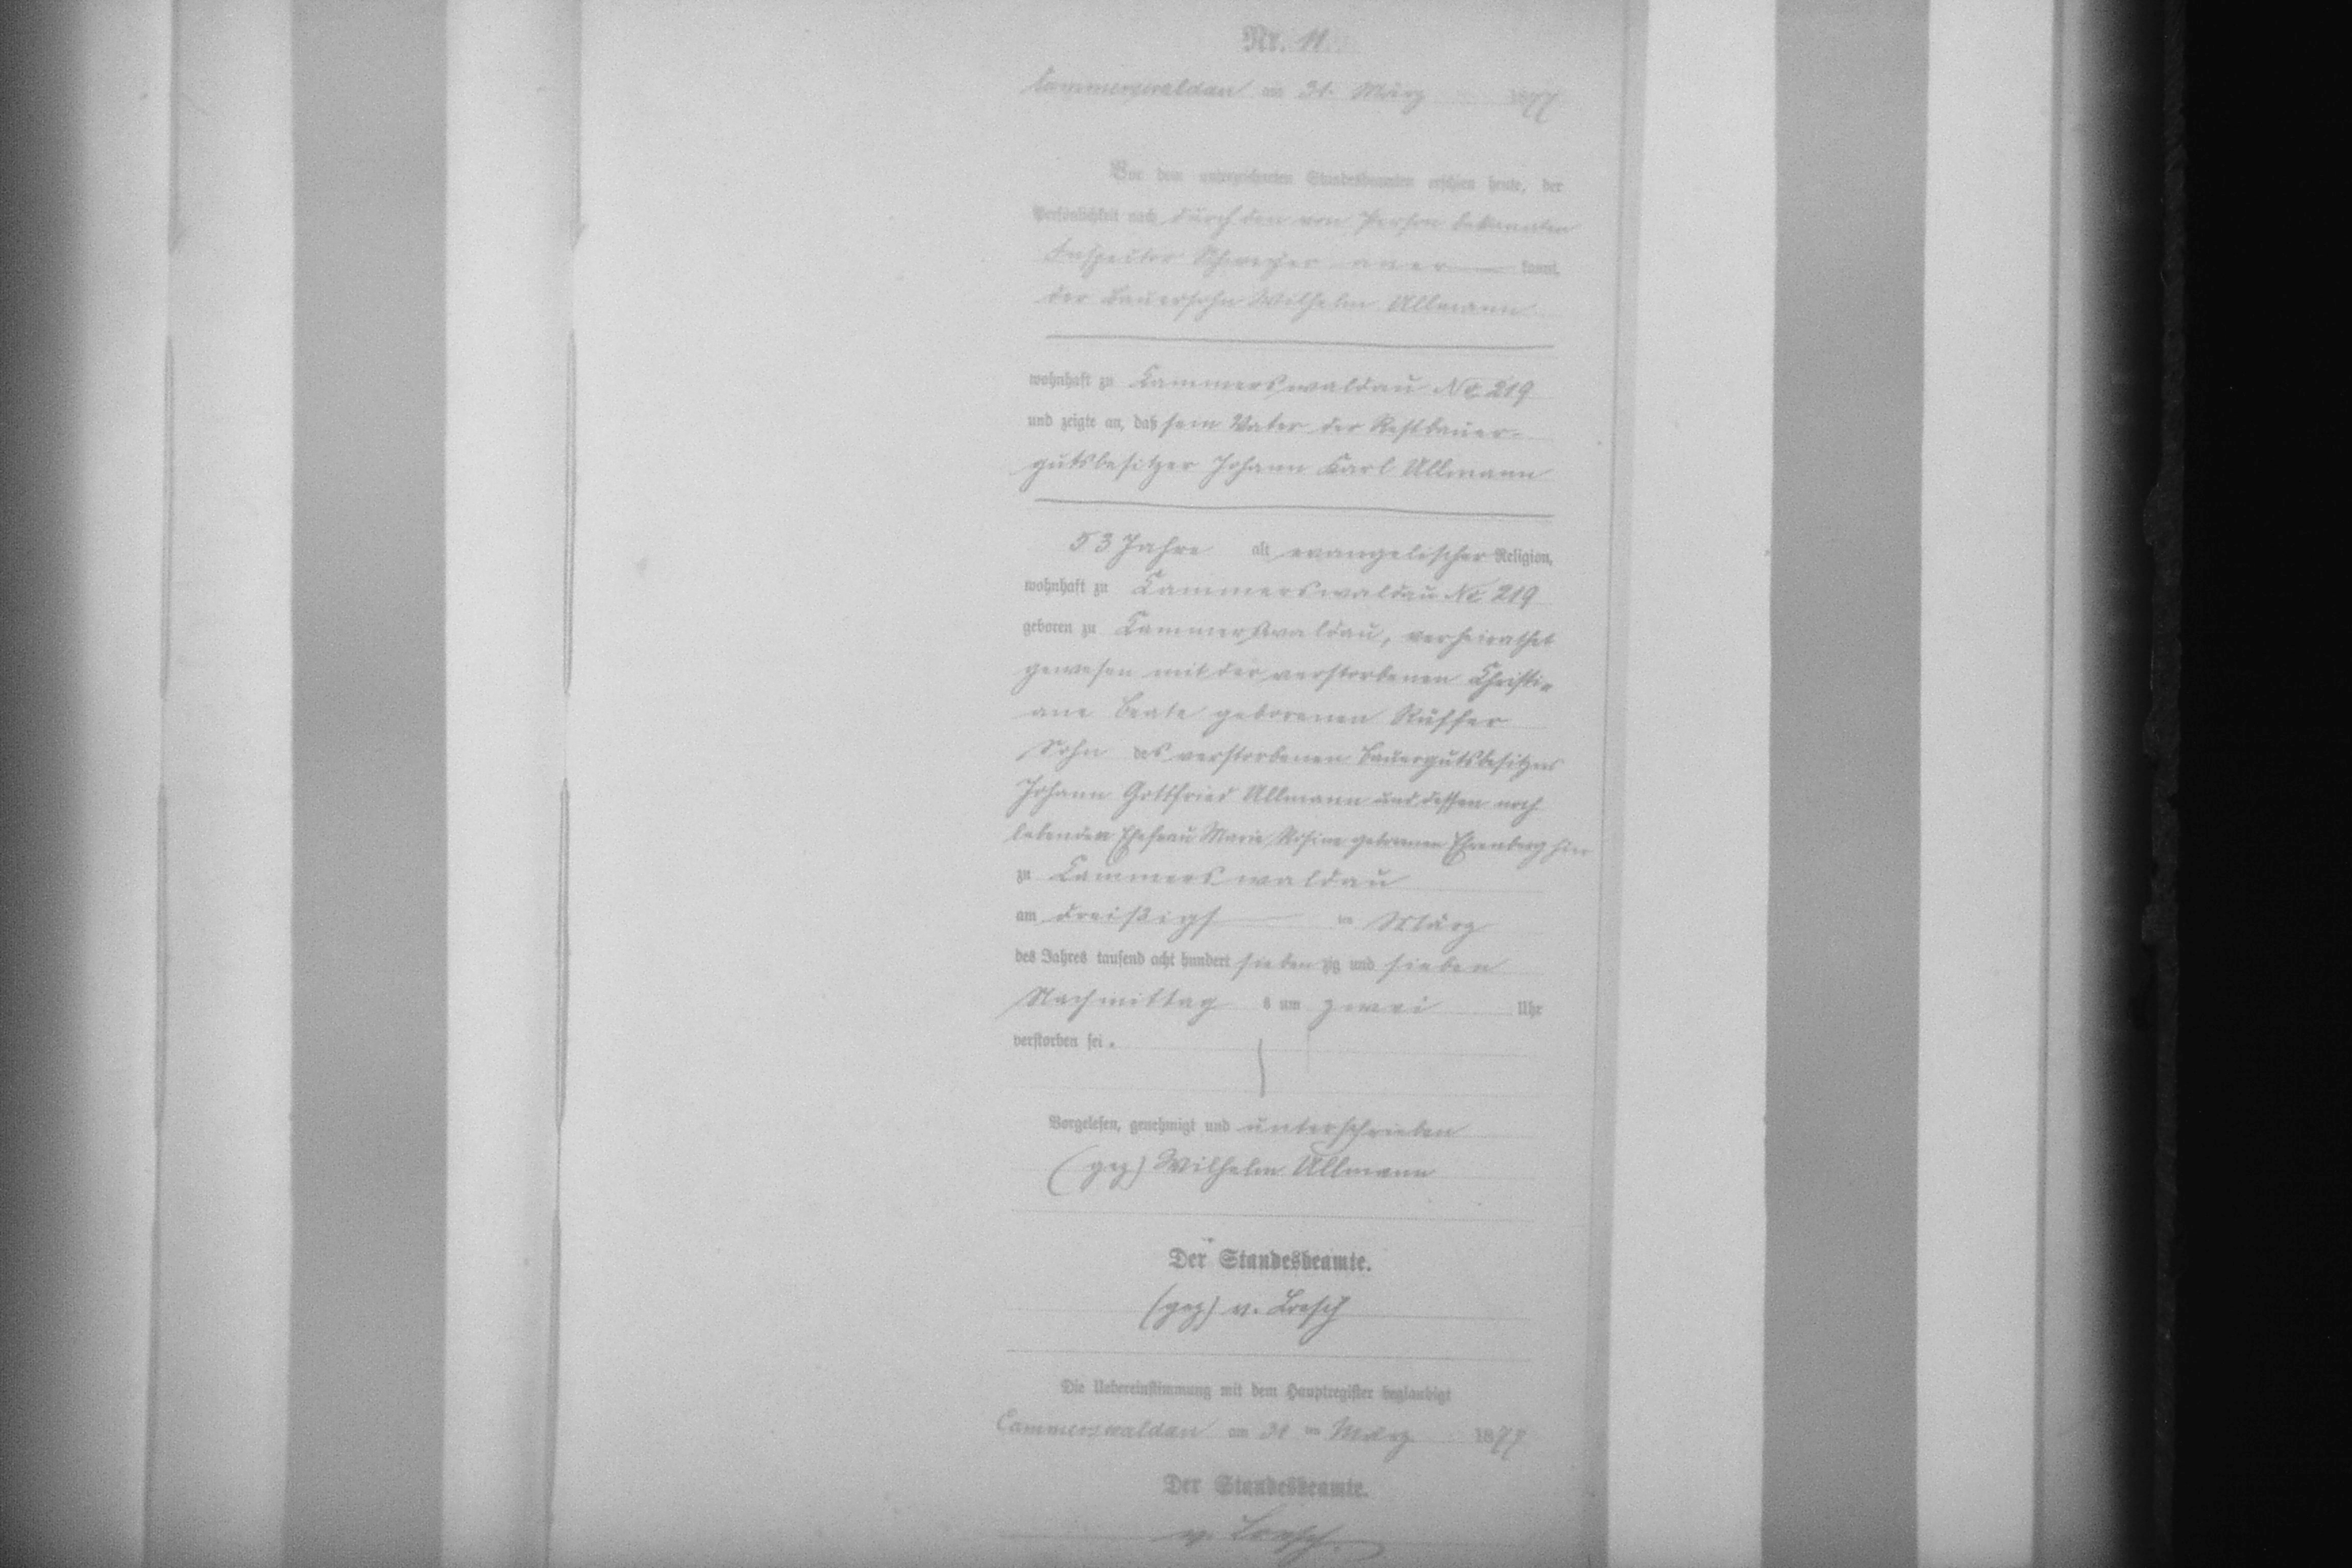 Nr. 11.
Cammerswaldau am 31. März 1877
Vor dem unterzeichneten Standesbeamten erschien heute, der
Persönlichkeit nach durch den von Person bekannten
Inspector aner kannt,
der Bauersohn Wilhelm Ullmann
wohnhaft zu Cammerswaldau No 219
und zeigte an, daß sein Vater der Restbauer-
gutsbesitzer Johann Karl Ullmann
53 Jahre alt, evangelischer Religion,
wohnhaft zu Cammerswaldau No 219
geboren zu Cammerswaldau, verheirathet
gewesen mit der verstorbenen Christi-
ane Beate geborenen Rüffer
Sohn des verstorbenen Bauergutsbesitzers
Johann Gottfried Ullmann und dessen noch
lebenden Ehefrau Marie Rosine geborenen Ehrenberg hier
zu Cammerswaldau
am dreißigst ten März
des Jahres tausend acht hundert siebenzig und sieben
Nachmittag s um zwei Uhr
verstorben sei.
Vorgelesen, genehmigt und unterschrieben
(gez) Wilhelm Ullmann
Der Standesbeamte.
(gez) v. Loesch
Die Uebereinstimmung mit dem Hauptregister beglaubigt
Cammerswaldau am 31 ten März 1877
Der Standesbeamte.
v. Loesch.